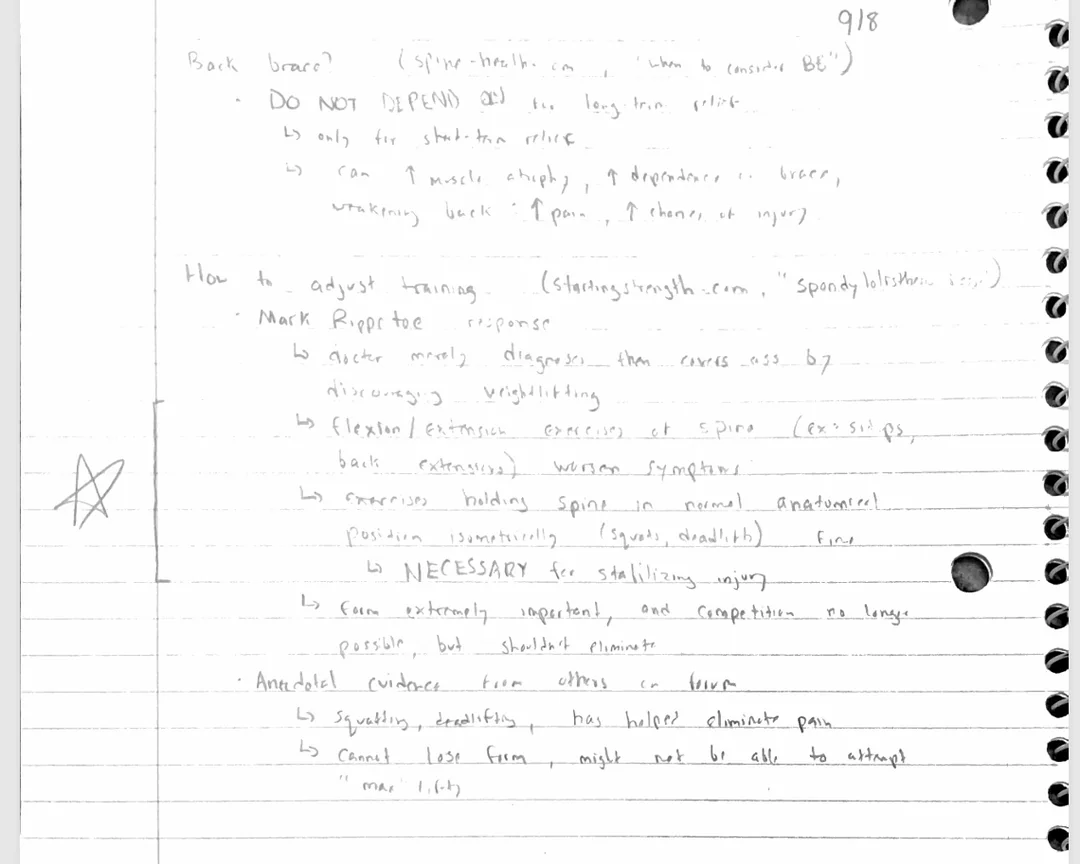 9/8
Back brace? (spine-health.com, "when to consider BE")
· DO NOT DEPEND ON for long-term relief
↳ only for short-term relief
↳ can ↑ muscle atrophy, ↑ dependence on brace,
weakening back : ↑ pain, ↑ chance of injury
How to adjust training (startingstrength.com, "spondylolisthesis
· Mark Rippetoe response
↳ doctor merely diagnoses then covers ass by
discouraging weightlifting
↳ flexion/extension exercises of spine (ex: situps,
back extensions) worsen symptoms
↳ exercises holding spine in normal anatomical
position isometrically (squats, deadlifts) fine
↳ NECESSARY for stabilizing injury
↳ form extremely important, and competition no longer
possible, but shouldn't eliminate
· Anecdotal evidence from others on forum
↳ squatting, deadlifting, has helped eliminate pain
↳ cannot lose form, might not be able to attempt
"max" lifts